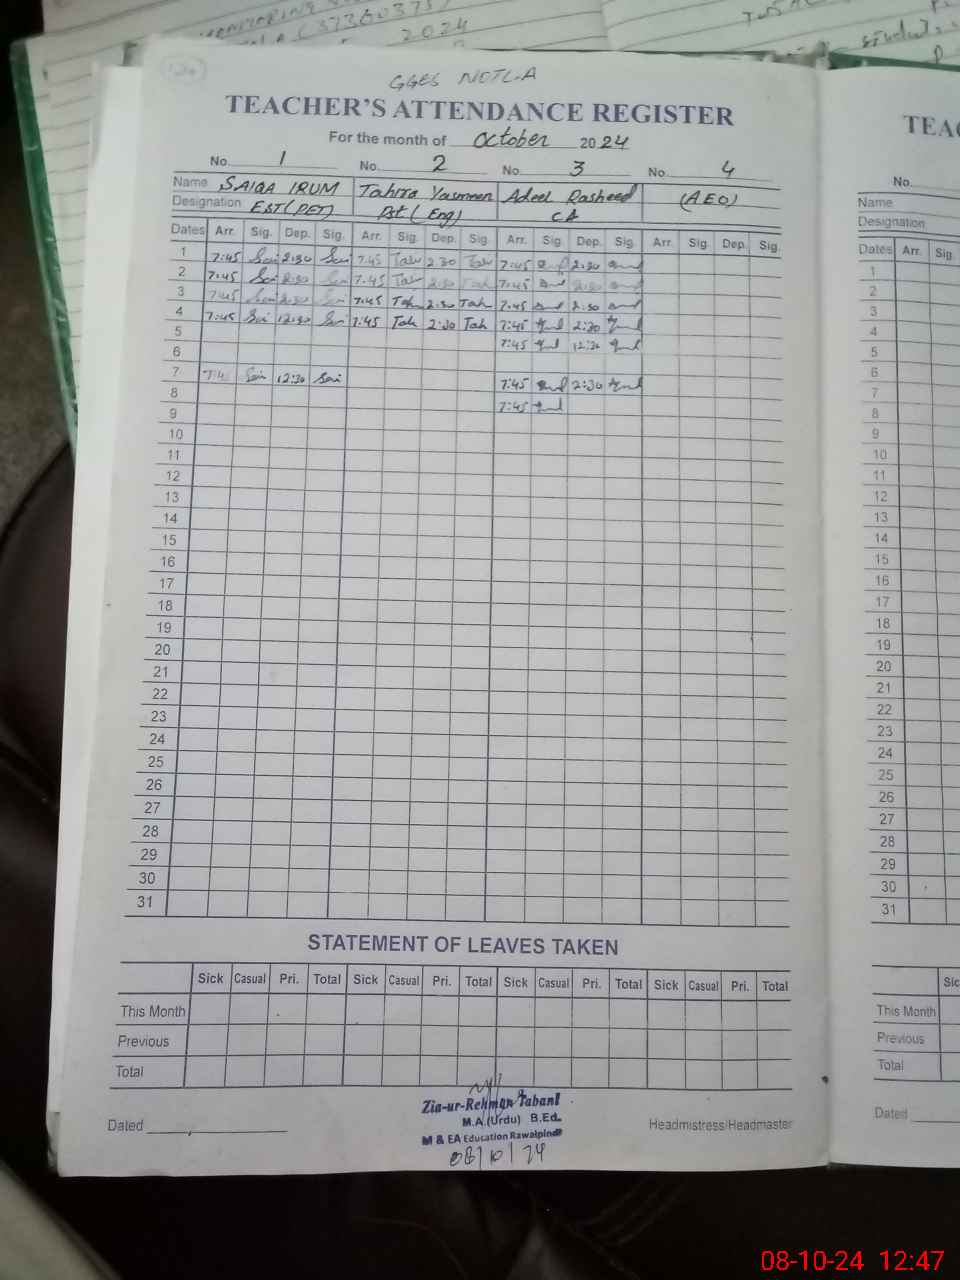 MONITORING
(37360375)
2024
GGES NOTLA
TEACHER'S ATTENDANCE REGISTER
For the month of October 2024
No. 1 No. 2 No. 3 No. 4
Name SAIQA IRUM Tahira Yasmeen Adeel Rasheed (AEO)
Designation EST(PET) Pst.(Eng) CA
Dates Arr. Sig. Dep. Sig. Arr. Sig. Dep. Sig. Arr. Sig. Dep. Sig. Arr. Sig. Dep. Sig.
1 7:45 Sai 2:30 Sai 7:45 Tah 2:30 Tah 7:45 2:30
2 7:45 Sai 2:30 Sai 7:45 Tah 2:30 Tah 7:45 2:30
3 7:45 Sai 2:30 Sai 7:45 Tah 2:30 Tah 7:45 2:30
4 7:45 Sai 12:30 Sai 7:45 Tah 2:30 Tah 7:45 2:30
5 7:45 12:30
6
7 7:45 Sai 12:30 Sai 7:45 2:30
8 7:45
9
10
11
12
13
14
15
16
17
18
19
20
21
22
23
24
25
26
27
28
29
30
31
STATEMENT OF LEAVES TAKEN
Sick Casual Pri. Total Sick Casual Pri. Total Sick Casual Pri. Total Sick Casual Pri. Total
This Month
Previous
Total
Zia-ur-Rehman Tabani
M.A.(Urdu) B.Ed.
M & EA Education Rawalpindi
08/10/24
Dated
Headmistress/Headmaster
TEAC
No.
Name
Designation
Dates Arr. Sig.
1
2
3
4
5
6
7
8
9
10
11
12
13
14
15
16
17
18
19
20
21
22
23
24
25
26
27
28
29
30
31
Sic
This Month
Previous
Total
Dated
08-10-24 12:47